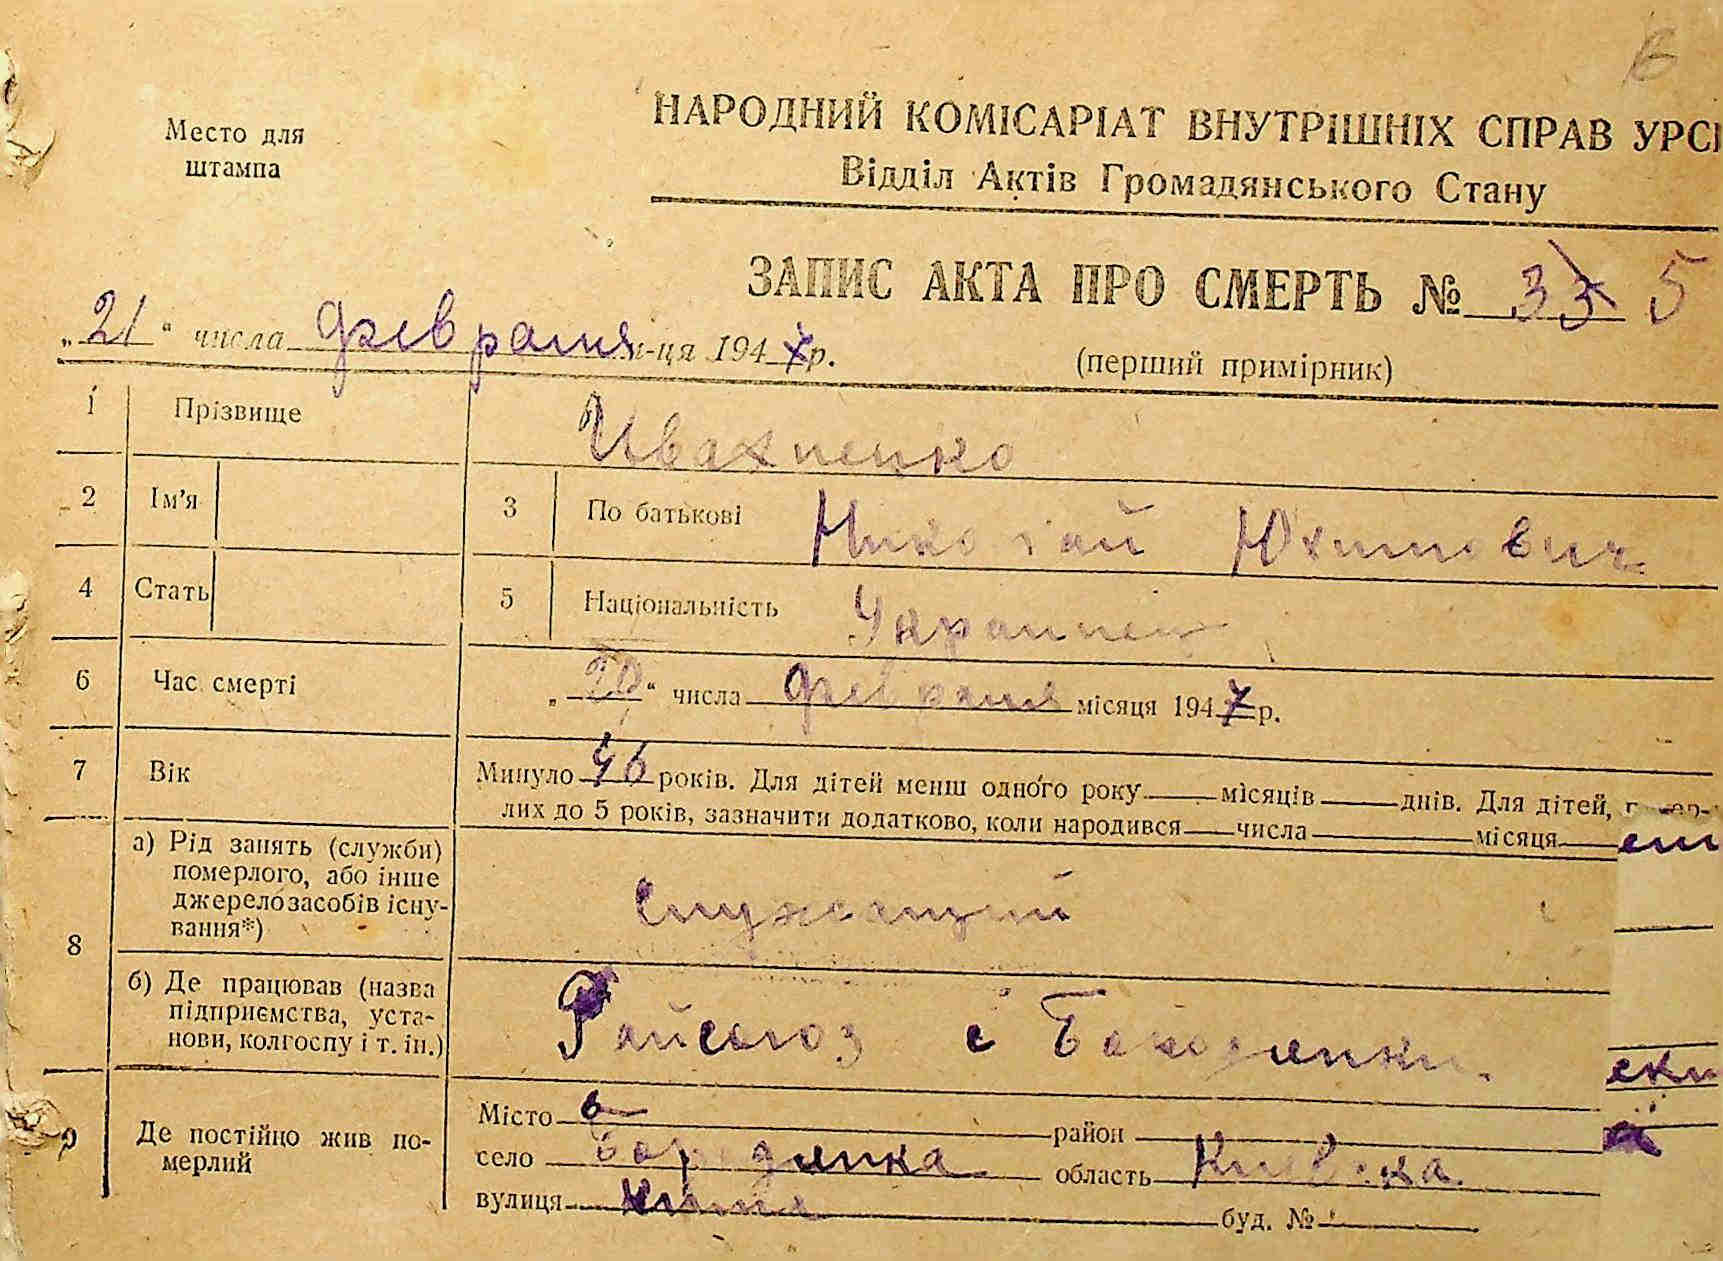 6
НАРОДНИЙ КОМІСАРІАТ ВНУТРІШНІХ СПРАВ УРС
Место для
штампа
Відділ Актів Громадянського Стану
ЗАПИС АКТА ПРО СМЕРТЬ № 33 5
„21“ числа февраля м-ця 1947 р.
(перший примірник)
1 Прізвище Ивахненко
2 Ім'я 3 По батькові Николай Юхимович
4 Стать 5 Національність Украинец
6 Час смерті „20“ числа февраля місяця 1947 р.
7 Вік Минуло 46 років. Для дітей менш одного року місяців днів. Для дітей,
лих до 5 років, зазначити додатково, коли народився числа місяця
8 а) Рід занять (служби)
померлого, або інше
джерело засобів існу-
вання*)
служащий
б) Де працював (назва
підприємства, уста-
нови, колгоспу і т. ін.)
Райсоюз с Бородянки
9 Де постійно жив по-
мерлий
Місто район
село Бородянка область Киевска
вулиця буд. №